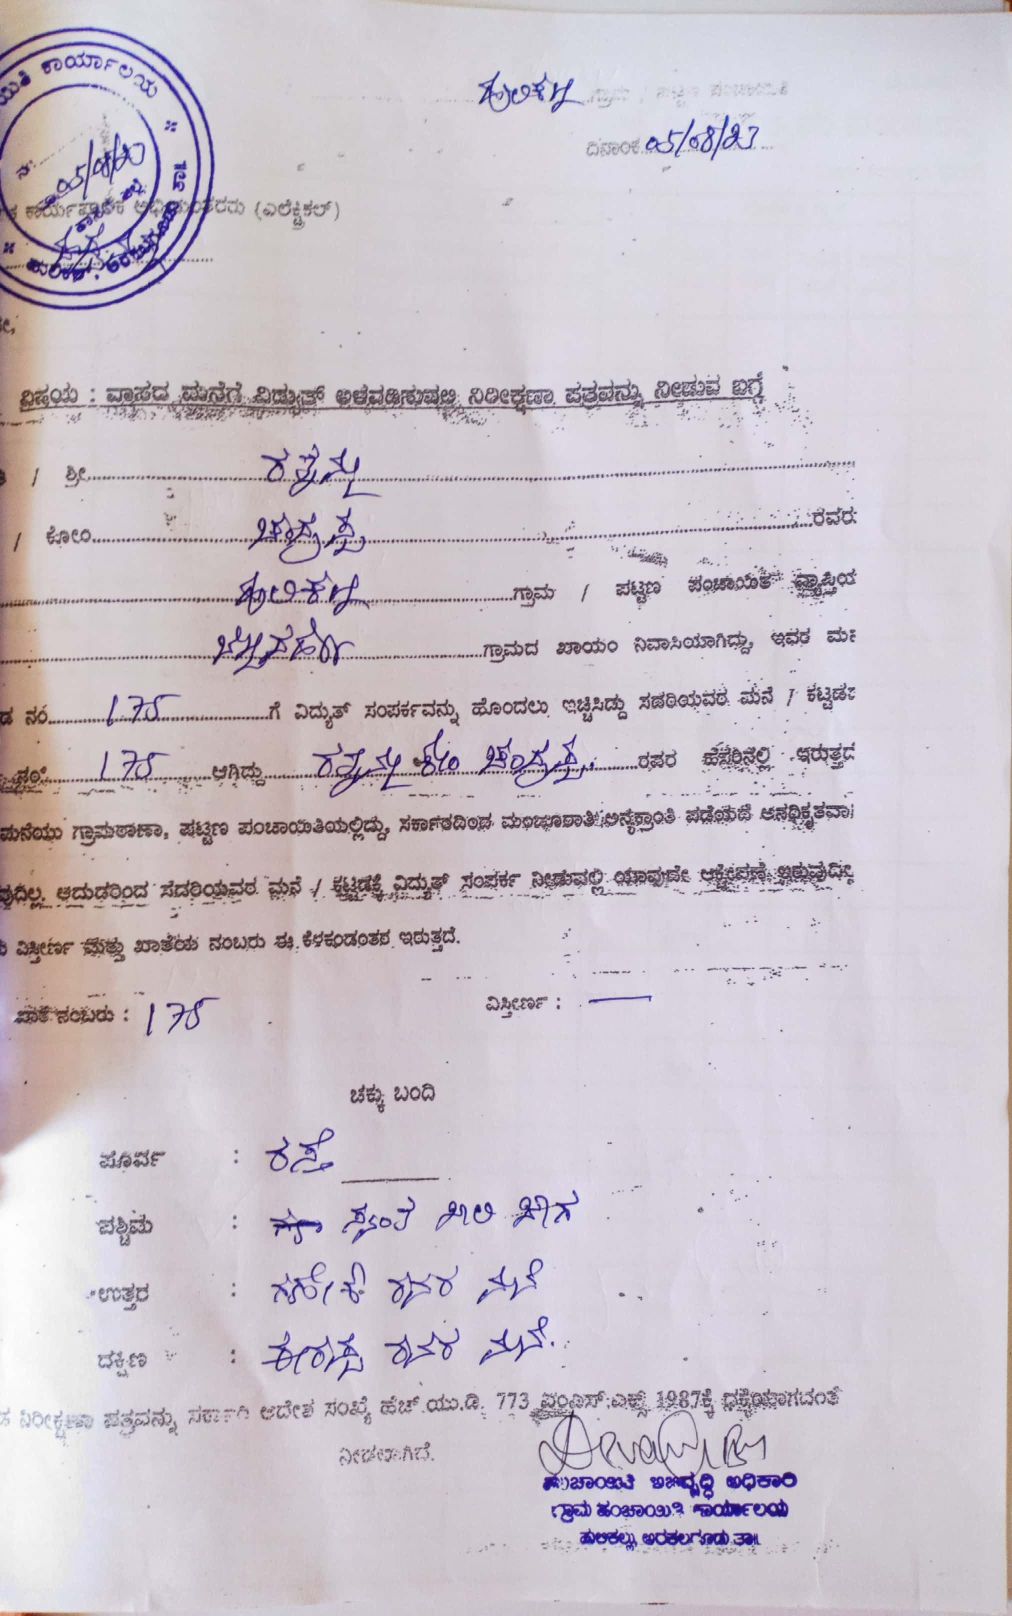 ಹುಲಿಕಲ್ಲು ಗ್ರಾಮ / ಪಟ್ಟಣ ಪಂಚಾಯಿತಿ
ದಿನಾಂಕ 05/08/23
ಕಾರ್ಯಾಲಯ
05/08/23
ಕಾರ್ಯಪಾಲಕ ಅಭಿಯಂತರರು (ಎಲೆಕ್ಟ್ರಿಕಲ್)
ವಿಷಯ : ವಾಸದ ಮನೆಗೆ ವಿದ್ಯುತ್ ಅಳವಡಿಸುವಲ್ಲಿ ನಿರೀಕ್ಷಣಾ ಪತ್ರವನ್ನು ನೀಡುವ ಬಗ್ಗೆ
/ ಶ್ರೀ ರತ್ನಮ್ಮ
/ ಕೋಂ ಚಂದ್ರಪ್ಪ ರವರು
ಹುಲಿಕಲ್ಲು ಗ್ರಾಮ / ಪಟ್ಟಣ ಪಂಚಾಯಿತಿ ವ್ಯಾಪ್ತಿಯ
ಗ್ರಾಮದ ಖಾಯಂ ನಿವಾಸಿಯಾಗಿದ್ದು, ಇವರ ಮ
ನಂ 175 ಗೆ ವಿದ್ಯುತ್ ಸಂಪರ್ಕವನ್ನು ಹೊಂದಲು ಇಚ್ಚಿಸಿದ್ದು ಸದರಿಯವರ ಮನೆ / ಕಟ್ಟಡ
175 ಆಗಿದ್ದು ರತ್ನಮ್ಮ ಕೋಂ ಚಂದ್ರಪ್ಪ ರವರ ಹೆಸರಿನಲ್ಲಿ ಇರುತ್ತದ
ಮನೆಯು ಗ್ರಾಮಠಾಣಾ, ಪಟ್ಟಣ ಪಂಚಾಯತಿಯಲ್ಲಿದ್ದು, ಸರ್ಕಾರದಿಂದ ಮಂಜೂರಾತಿ ಅನ್ಯಕ್ರಾಂತಿ ಪಡೆಯದೆ ಅನಧಿಕೃತವಾ
ವುದಿಲ್ಲ. ಆದುದರಿಂದ ಸದರಿಯವರ ಮನೆ / ಕಟ್ಟಡಕ್ಕೆ ವಿದ್ಯುತ್ ಸಂಪರ್ಕ ನೀಡುವಲ್ಲಿ ಯಾವುದೇ ಆಕ್ಷೇಪಣೆ ಇರುವುದಿ
ವಿಸ್ತೀರ್ಣ ಮತ್ತು ಖಾತೆಯ ನಂಬರು ಈ ಕೆಳಕಂಡಂತೆ ಇರುತ್ತದೆ.
ಖಾತೆ ನಂಬರು : 175 ವಿಸ್ತೀರ್ಣ : —
ಚಕ್ಕು ಬಂದಿ
ಪೂರ್ವ : ರಸ್ತೆ
ಪಶ್ಚಿಮ : ಸ್ವಂತ ಖಾಲಿ ಜಾಗ
ಉತ್ತರ : ಗಣೇಶ ರವರ ಮನೆ
ದಕ್ಷಿಣ : ರವರ ಮನೆ.
ನಿರೀಕ್ಷಣಾ ಪತ್ರವನ್ನು ಸರ್ಕಾರಿ ಆದೇಶ ಸಂಖ್ಯೆ ಹೆಚ್.ಯು.ಡಿ. 773 ಎಂ.ಎನ್.ಎಕ್ಸ್ 1987ಕ್ಕೆ ಧಕ್ಕೆಯಾಗದಂತೆ
ನೀಡಲಾಗಿದೆ.
ಪಂಚಾಯಿತಿ ಅಭಿವೃದ್ಧಿ ಅಧಿಕಾರಿ
ಗ್ರಾಮ ಪಂಚಾಯಿತಿ ಕಾರ್ಯಾಲಯ
ಹುಲಿಕಲ್ಲು, ಅರಕಲಗೂಡು ತಾ||